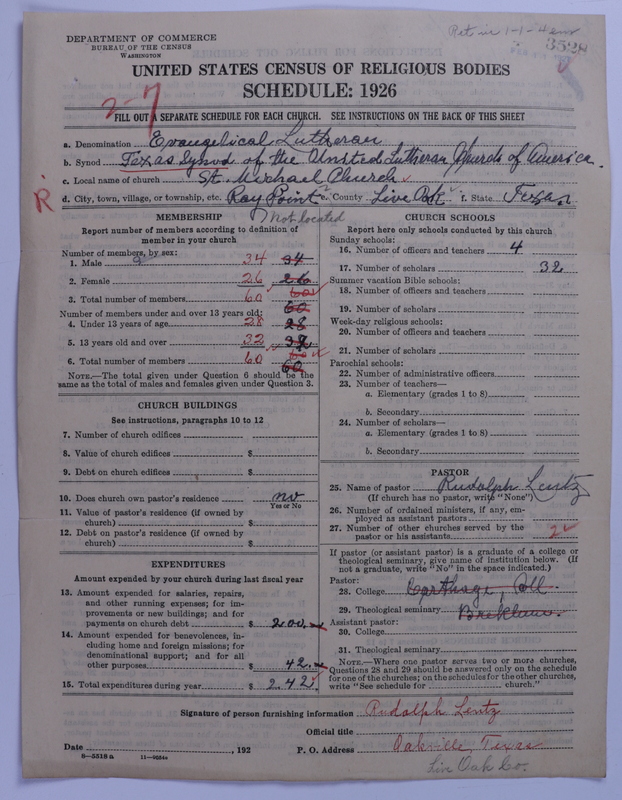 DEPARTMENT OF COMMERCE
BUREAU OF THE CENSUS
WASHINGTON
3528
UNITED STATES CENSUS OF RELIGIOUS BODIES
SCHEDULE: 1926
2-7
FILL OUT A SEPARATE SCHEDULE FOR EACH CHURCH. SEE INSTRUCTIONS ON THE BACK OF THIS SHEET
a. Denomination Evangelical Lutheran
b. Synod Texas Synod of the United Lutheran Church of America.
c. Local name of church St. Michael Church
R
d. City, town, village, or township, etc. Ray Point e. County Live Oak f. State Texas
Not located
MEMBERSHIP
Report number of members according to definition of
member in your church
Number of members, by sex:
1. Male 34 34
2. Female 26 26
3. Total number of members 60 60
60
Number of members under and over 13 years old:
4. Under 13 years of age 28 28
5. 13 years old and over 32 32
6. Total number of members 60 60
60
NOTE.—The total given under Question 6 should be the
same as the total of males and females given under Question 3.
CHURCH BUILDINGS
See instructions, paragraphs 10 to 12
7. Number of church edifices
8. Value of church edifices $
9. Debt on church edifices $
10. Does church own pastor's residence no
Yes or No
11. Value of pastor's residence (if owned by
church) $
12. Debt on pastor's residence (if owned by
church) $
EXPENDITURES
Amount expended by your church during last fiscal year
13. Amount expended for salaries, repairs,
and other running expenses; for im-
provements or new buildings; and for
payments on church debt $ 200.
14. Amount expended for benevolences, in-
cluding home and foreign missions; for
denominational support; and for all
other purposes $ 42.
15. Total expenditures during year $ 242
CHURCH SCHOOLS
Report here only schools conducted by this church
Sunday schools:
16. Number of officers and teachers 4
17. Number of scholars 32
Summer vacation Bible schools:
18. Number of officers and teachers
19. Number of scholars
Week-day religious schools:
20. Number of officers and teachers
21. Number of scholars
Parochial schools:
22. Number of administrative officers
23. Number of teachers—
a. Elementary (grades 1 to 8)
b. Secondary
24. Number of scholars—
a. Elementary (grades 1 to 8)
b. Secondary
PASTOR
25. Name of pastor Rudolph Lentz
(If church has no pastor, write "None")
26. Number of ordained ministers, if any, em-
ployed as assistant pastors
27. Number of other churches served by the
pastor or his assistants 2
If pastor (or assistant pastor) is a graduate of a college or
theological seminary, give name of institution below. (If
not a graduate, write "No" in the space indicated.)
Pastor:
28. College Carthage, Coll
29. Theological seminary
Assistant pastor:
30. College
31. Theological seminary
NOTE.—Where one pastor serves two or more churches,
Questions 28 and 29 should be answered only on the schedule
for one of the churches; on the schedules for the other churches,
write "See schedule for church."
Signature of person furnishing information Rudolph Lentz
Official title
Date , 192
P. O. Address Oakville, Texas
8-5518 a 11-9654
Live Oak Co.